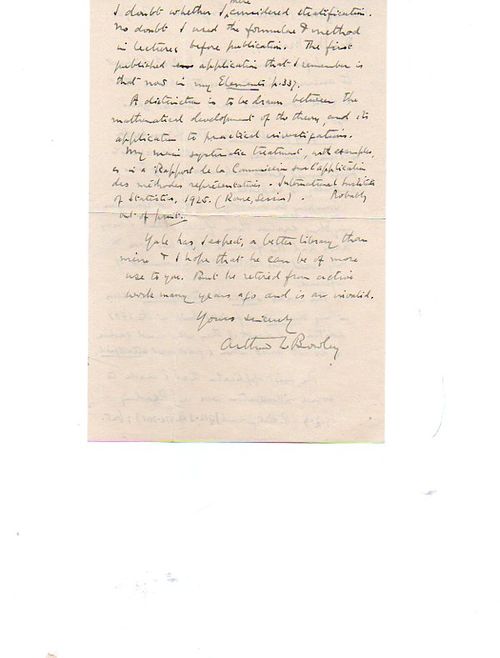 here
I doubt whether I considered stratification.
No doubt I used the formulae & method
in lectures before publication. The first
published application that I remember is
that now in my Elements p. 337.
A distinction is to be drawn between the
mathematical development of the theory, and its
application to practical investigations.
My main systematic treatment, with examples,
is in a Rapport de la Commission sur l'application
des méthodes représentatives. International Institute
of Statistics, 1925. (Rome, Session). Probably
out of print.
Yule has, I expect, a better library than
mine & I hope that he can be of more
use to you. But he retired from active
work many years ago and is an invalid.
Yours sincerely
Arthur L Bowley